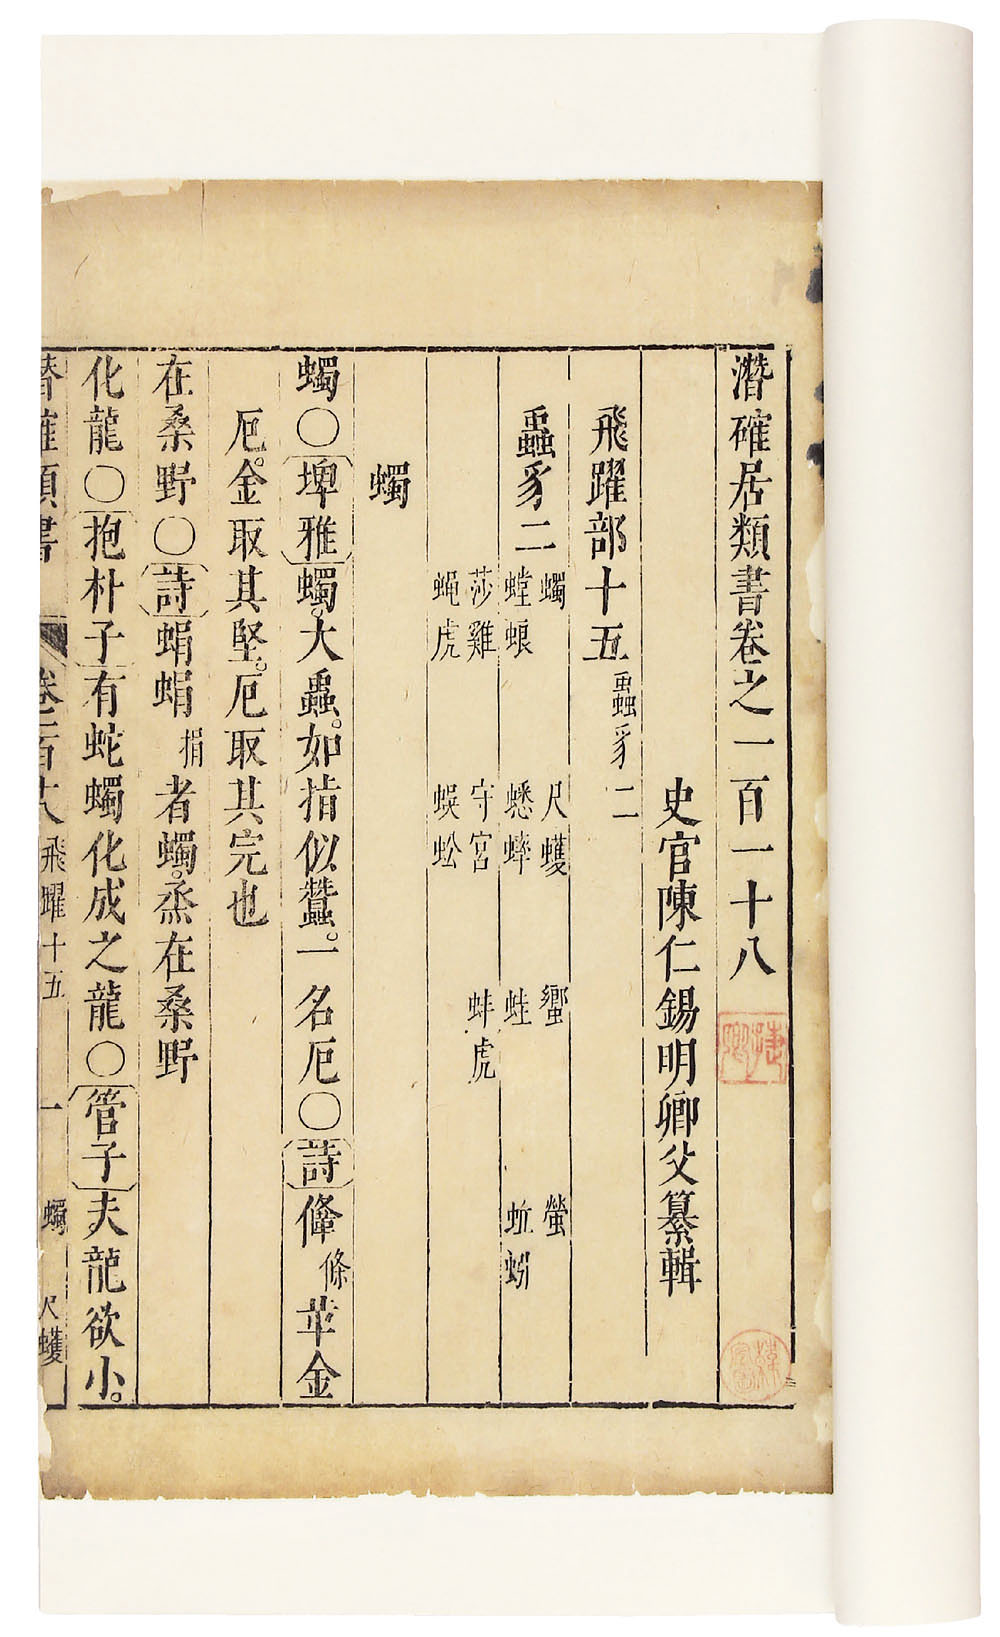 潛確居類書卷之一百一十八
史官陳仁錫明卿父纂輯
飛躍部十五 蟲豸二
蟲豸二
蠋 尺蠖 蠁 螢
螳蜋 蟋蟀 蛙 蚯蚓
莎雞 守宮 蚌虎
蝇虎 蜈蚣
蠋
蠋○埤雅蠋。大蟲。如指似蠶。一名厄○詩鞗條革金
厄。金取其堅。厄取其完也
在桑野○詩蜎蜎捐者蠋。烝在桑野
化龍○抱朴子有蛇蠋化成之龍○管子夫龍欲小。
潛確類書 卷一百十八 飛躍十五 一 蠋 尺蠖